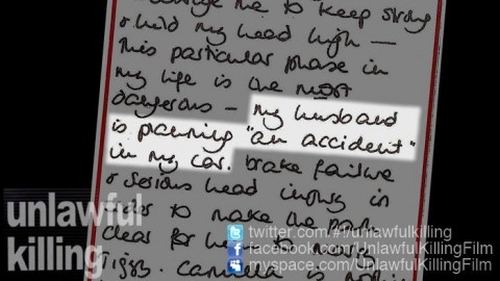 me to keep strong
& hold my head high —
this particular phase in
my life is the most
dangerous — my husband
is planning "an accident"
in my car. brake failure
& serious head injury in
to make the
clear for to marry
Tiggy. Camilla is
unlawful
killing
twitter.com/#!/unlawfulkilling
facebook.com/UnlawfulKillingFilm
myspace.com/UnlawfulKillingFilm